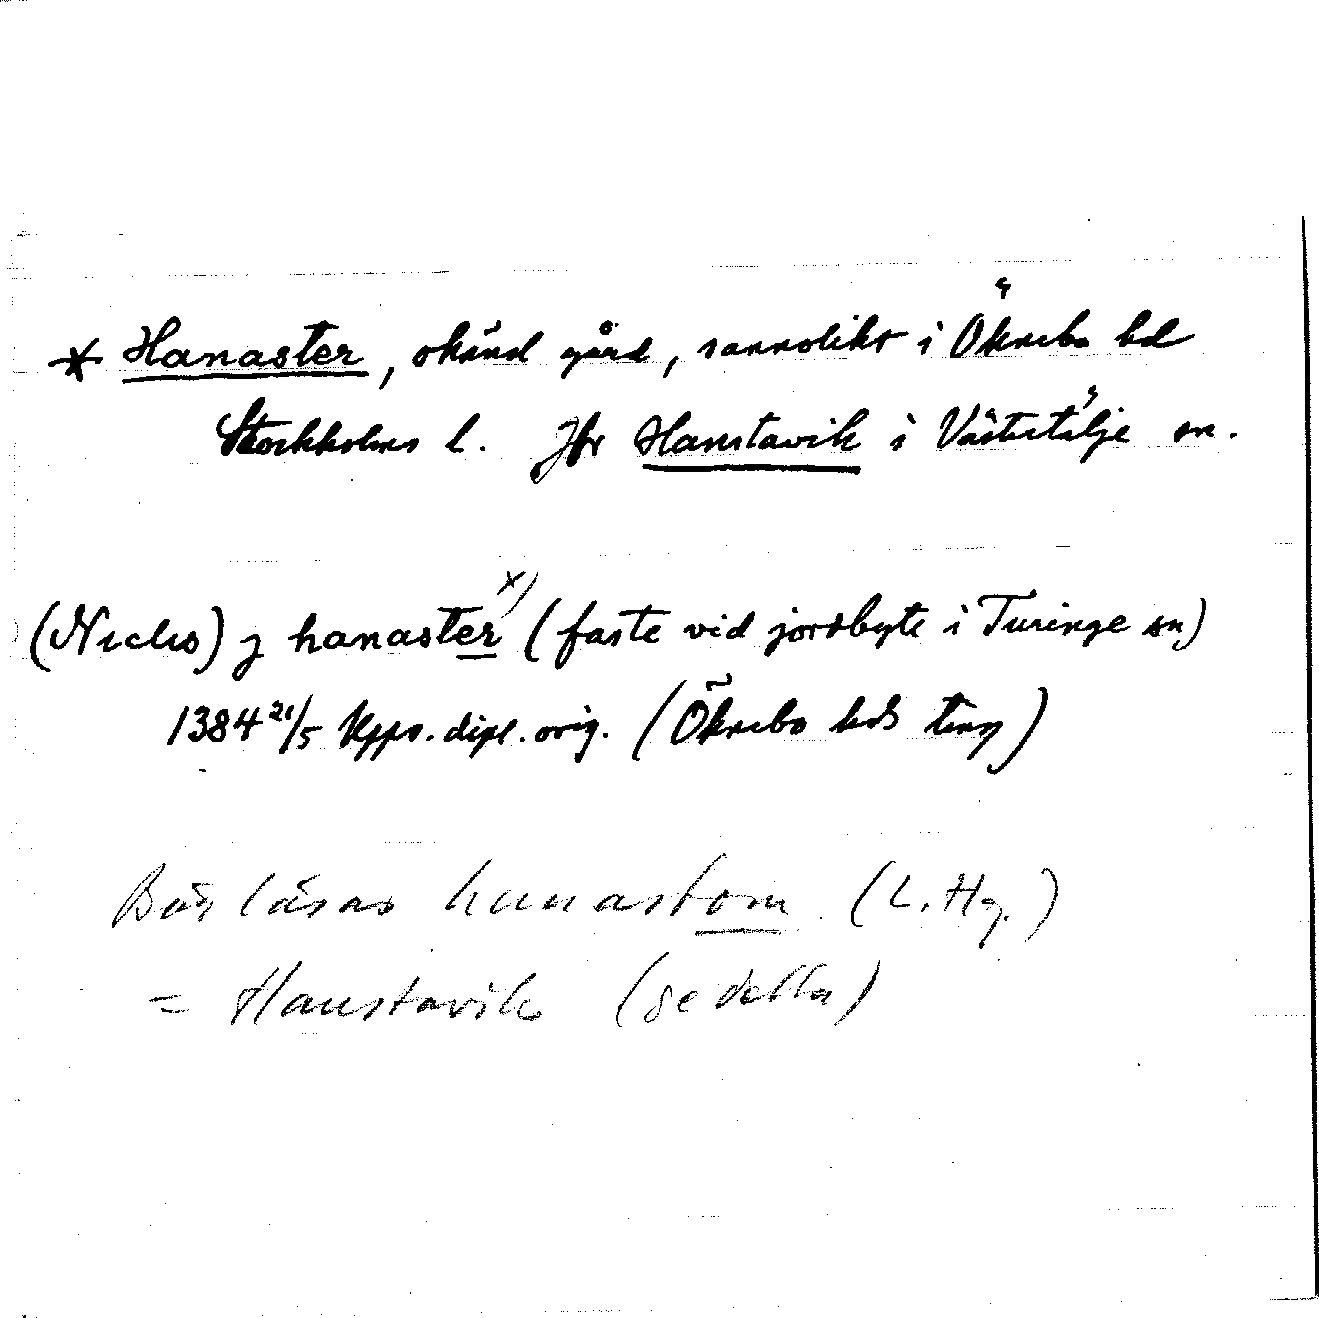 * Hanaster, okänd gård, sannolikt i Öknebo hd
Stockholms l. Jfr Hanstavik i Västertälje sn.
(Niclis) j hanaster x) (faste vid jordbyte i Turinge sn)
1384 21/5 Upps. dipl. orig. (Öknebo hds ting)
Bör läsas hanastom (L. Hg.)
= Hanstavik (se detta)